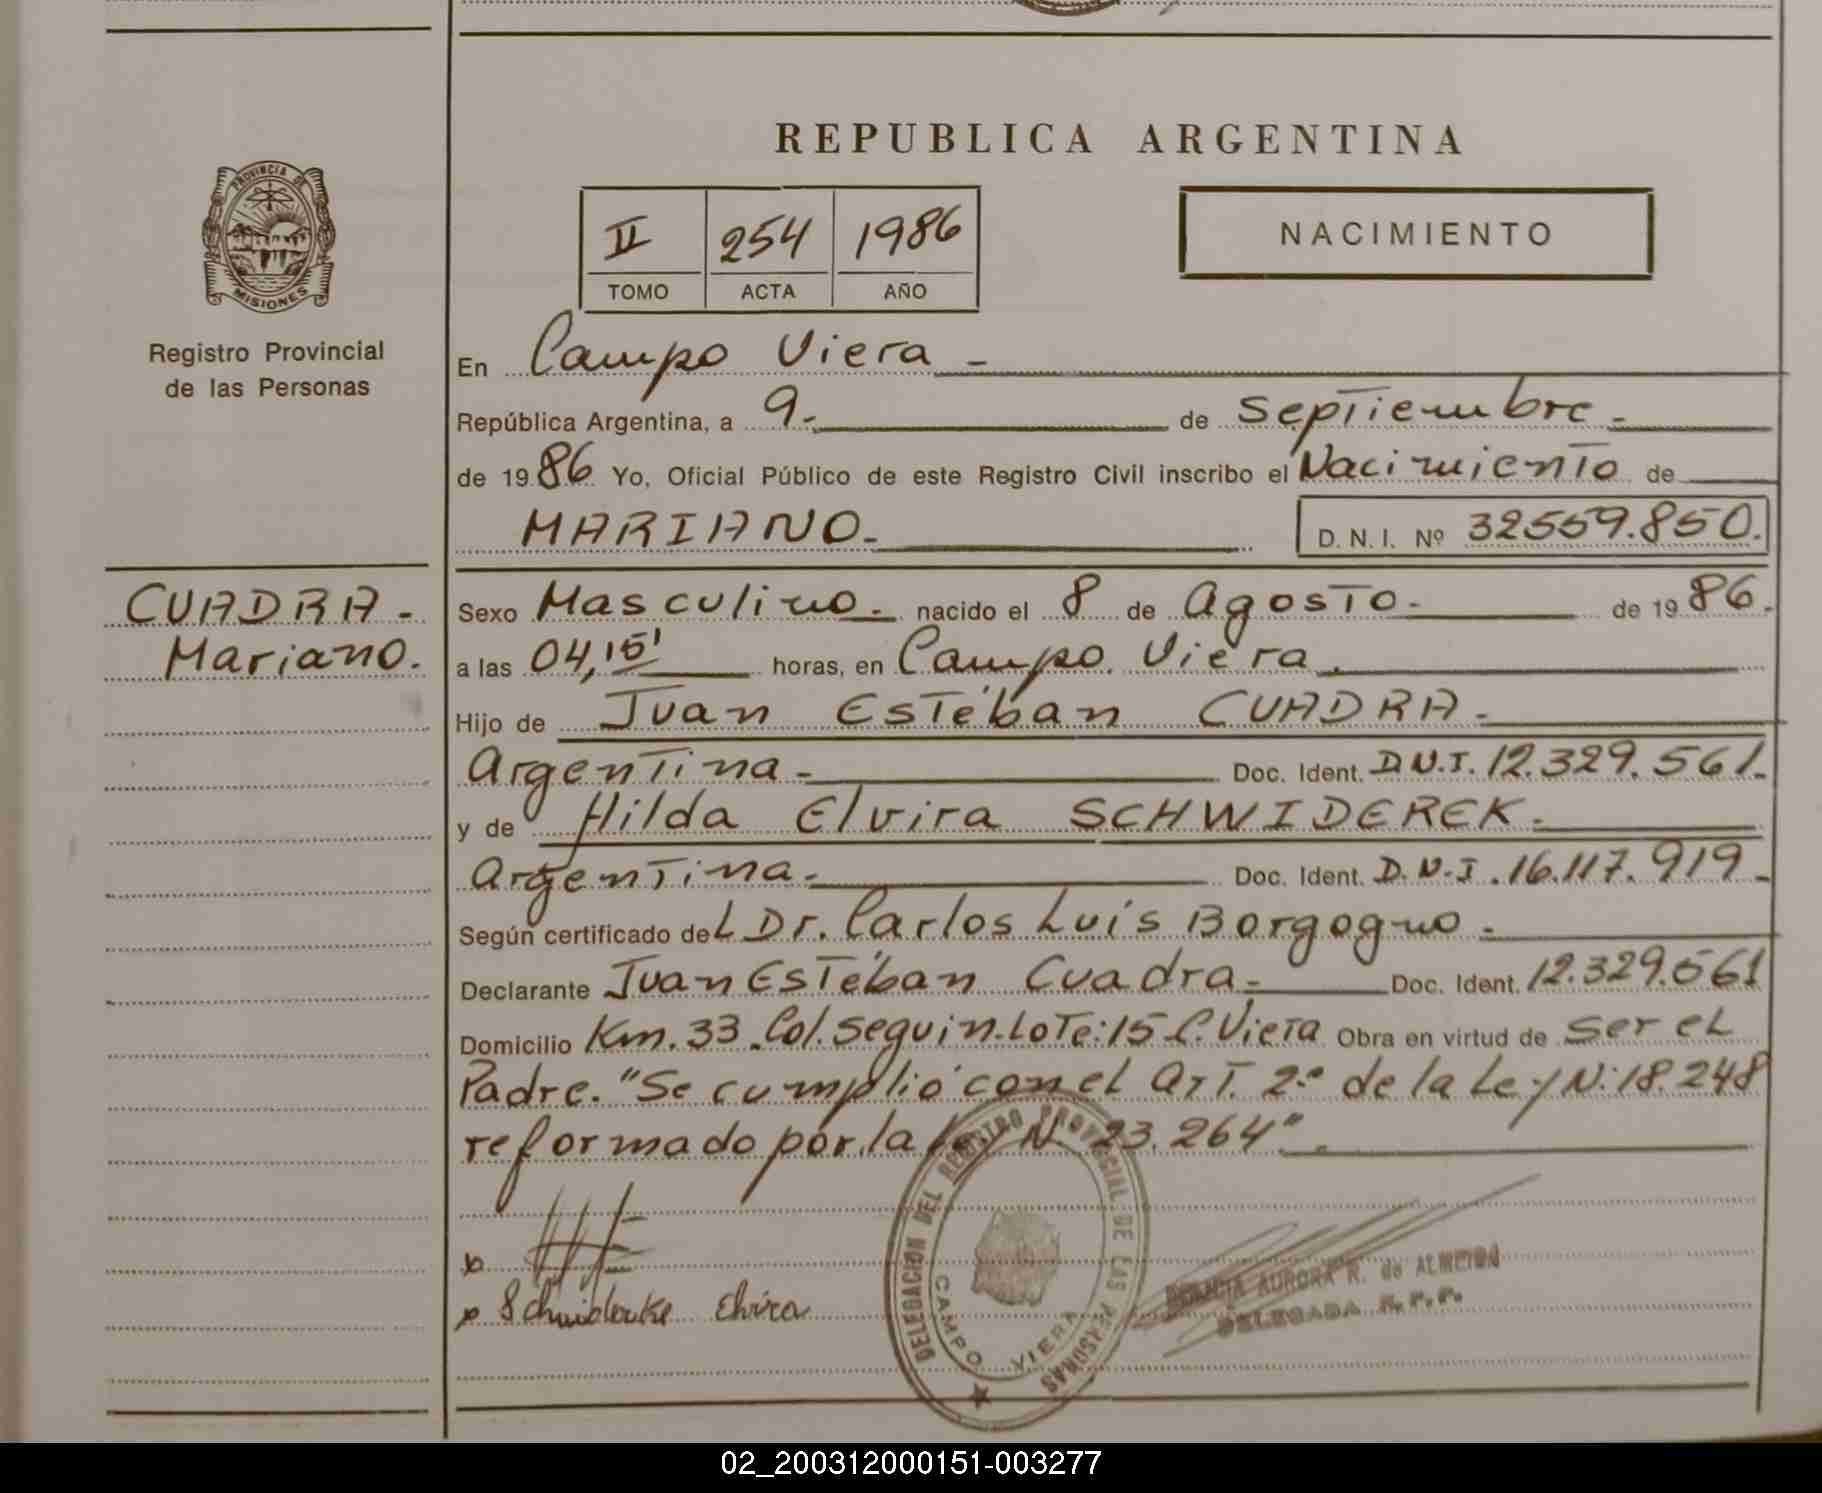 REPUBLICA ARGENTINA
PROVINCIA DE
MISIONES
Registro Provincial
de las Personas
II 254 1986
TOMO ACTA AÑO
NACIMIENTO
En Campo Viera -
República Argentina, a 9.- de Septiembre.-
de 1986 Yo, Oficial Público de este Registro Civil inscribo el Nacimiento de
MARIANO.- D. N. I. Nº 32559.850.
CUADRA.-
Mariano.
Sexo Masculino.- nacido el 8 de Agosto.- de 1986.
a las 04,15' horas, en Campo Viera.
Hijo de Juan Estéban CUADRA.-
Argentina.- Doc. Ident. D.N.I. 12.329.561.-
y de Hilda Elvira SCHWIDEREK.-
Argentina.- Doc. Ident. D.N.I. 16.117.919.-
Según certificado deL Dr. Carlos Luís Borgogno.-
Declarante Juan Estéban Cuadra.- Doc. Ident. 12.329.561
Domicilio Km. 33 Col. Seguin. Lote: 15 C. Viera Obra en virtud de ser el
Padre. "Se cumplió con el Art. 2º de la Ley N: 18.248
reformado por la Ley N 23.264".
x
x Schwiderke Elvira
DELEGACION DEL REGISTRO PROVINCIAL DE LAS PERSONAS
CAMPO VIERA
AURORA R. de
DELEGADA R. P. P.
02_200312000151-003277